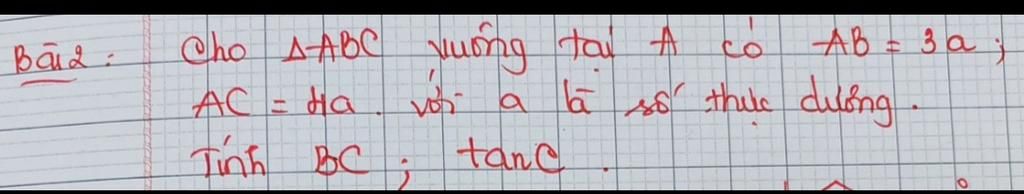 Bài 2: Cho ΔABC vuông tại A có AB = 3a;
AC = 4a. với a là số thực dương.
Tính BC; tanC.